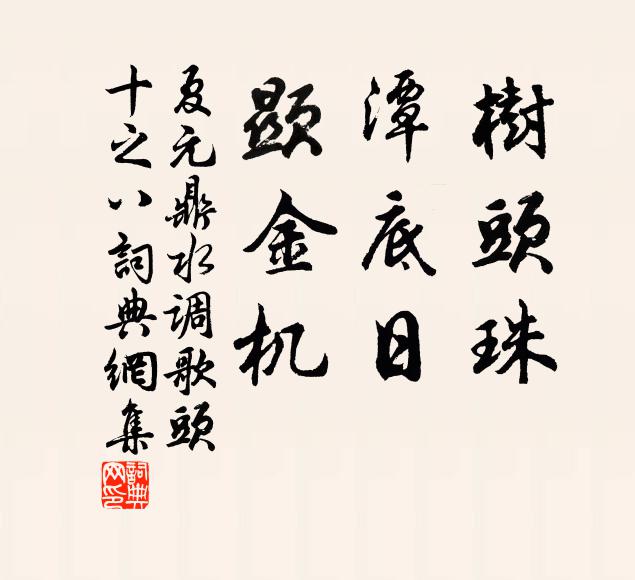 樹頭珠
潭底日
顯金机
夏元鼎水调歌頭
十之八詞典網集
詞典网印